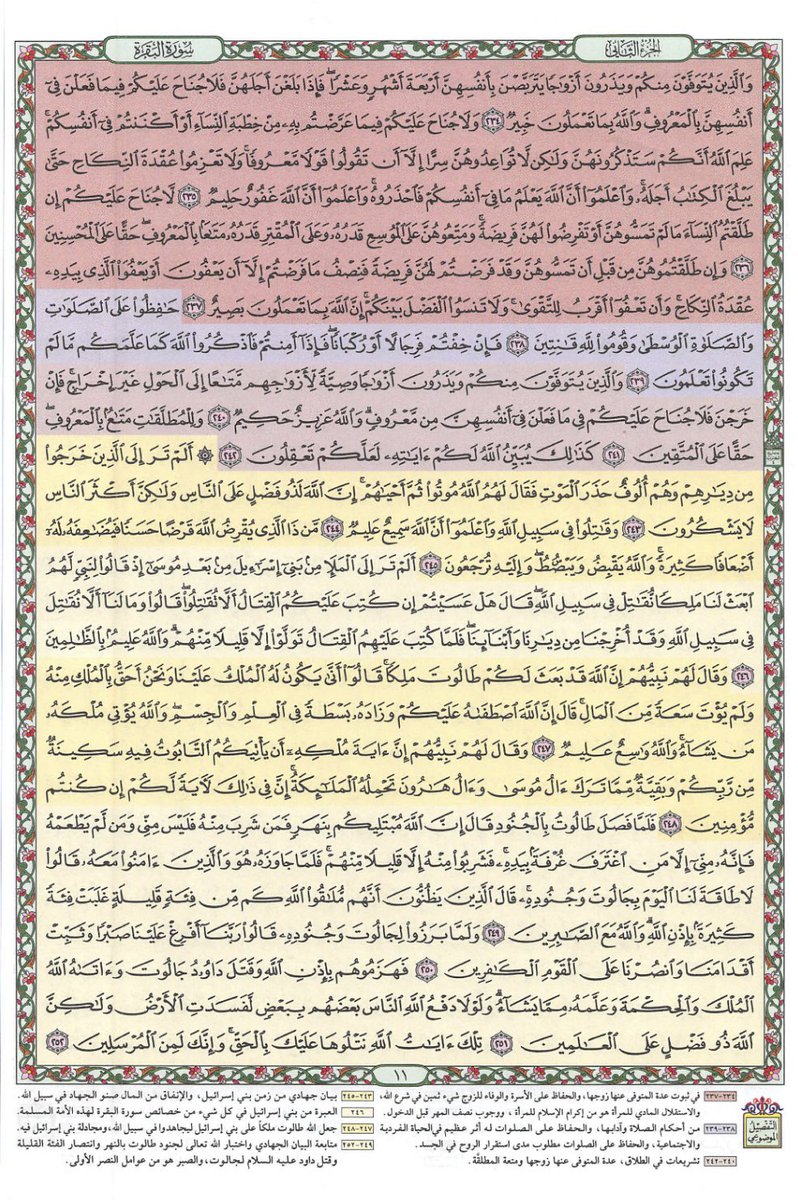 سورة البقرة
الجزء الثاني
وَالَّذِينَ يُتَوَفَّوْنَ مِنكُمْ وَيَذَرُونَ أَزْوَاجًا يَتَرَبَّصْنَ بِأَنفُسِهِنَّ أَرْبَعَةَ أَشْهُرٍ وَعَشْرًا ۖ فَإِذَا بَلَغْنَ أَجَلَهُنَّ فَلَا جُنَاحَ عَلَيْكُمْ فِيمَا فَعَلْنَ فِي
أَنفُسِهِنَّ بِالْمَعْرُوفِ ۗ وَاللَّهُ بِمَا تَعْمَلُونَ خَبِيرٌ ٢٣٤ وَلَا جُنَاحَ عَلَيْكُمْ فِيمَا عَرَّضْتُم بِهِ مِنْ خِطْبَةِ النِّسَاءِ أَوْ أَكْنَنتُمْ فِي أَنفُسِكُمْ ۚ
عَلِمَ اللَّهُ أَنَّكُمْ سَتَذْكُرُونَهُنَّ وَلَٰكِن لَّا تُوَاعِدُوهُنَّ سِرًّا إِلَّا أَن تَقُولُوا قَوْلًا مَّعْرُوفًا ۚ وَلَا تَعْزِمُوا عُقْدَةَ النِّكَاحِ حَتَّىٰ
يَبْلُغَ الْكِتَابُ أَجَلَهُ ۚ وَاعْلَمُوا أَنَّ اللَّهَ يَعْلَمُ مَا فِي أَنفُسِكُمْ فَاحْذَرُوهُ ۚ وَاعْلَمُوا أَنَّ اللَّهَ غَفُورٌ حَلِيمٌ ٢٣٥ لَّا جُنَاحَ عَلَيْكُمْ إِن
طَلَّقْتُمُ النِّسَاءَ مَا لَمْ تَمَسُّوهُنَّ أَوْ تَفْرِضُوا لَهُنَّ فَرِيضَةً ۚ وَمَتِّعُوهُنَّ عَلَى الْمُوسِعِ قَدَرُهُ وَعَلَى الْمُقْتِرِ قَدَرُهُ مَتَاعًا بِالْمَعْرُوفِ ۖ حَقًّا عَلَى الْمُحْسِنِينَ
٢٣٦ وَإِن طَلَّقْتُمُوهُنَّ مِن قَبْلِ أَن تَمَسُّوهُنَّ وَقَدْ فَرَضْتُمْ لَهُنَّ فَرِيضَةً فَنِصْفُ مَا فَرَضْتُمْ إِلَّا أَن يَعْفُونَ أَوْ يَعْفُوَا الَّذِي بِيَدِهِ
عُقْدَةُ النِّكَاحِ ۚ وَأَن تَعْفُوا أَقْرَبُ لِلتَّقْوَىٰ ۚ وَلَا تَنسَوُا الْفَضْلَ بَيْنَكُمْ ۚ إِنَّ اللَّهَ بِمَا تَعْمَلُونَ بَصِيرٌ ٢٣٧ حَافِظُوا عَلَى الصَّلَوَاتِ
وَالصَّلَاةِ الْوُسْطَىٰ وَقُومُوا لِلَّهِ قَانِتِينَ ٢٣٨ فَإِنْ خِفْتُمْ فَرِجَالًا أَوْ رُكْبَانًا ۖ فَإِذَا أَمِنتُمْ فَاذْكُرُوا اللَّهَ كَمَا عَلَّمَكُم مَّا لَمْ
تَكُونُوا تَعْلَمُونَ ٢٣٩ وَالَّذِينَ يُتَوَفَّوْنَ مِنكُمْ وَيَذَرُونَ أَزْوَاجًا وَصِيَّةً لِّأَزْوَاجِهِم مَّتَاعًا إِلَى الْحَوْلِ غَيْرَ إِخْرَاجٍ ۚ فَإِنْ
خَرَجْنَ فَلَا جُنَاحَ عَلَيْكُمْ فِي مَا فَعَلْنَ فِي أَنفُسِهِنَّ مِن مَّعْرُوفٍ ۗ وَاللَّهُ عَزِيزٌ حَكِيمٌ ٢٤٠ وَلِلْمُطَلَّقَاتِ مَتَاعٌ بِالْمَعْرُوفِ ۖ
حَقًّا عَلَى الْمُتَّقِينَ ٢٤١ كَذَٰلِكَ يُبَيِّنُ اللَّهُ لَكُمْ آيَاتِهِ لَعَلَّكُمْ تَعْقِلُونَ ٢٤٢ ۞ أَلَمْ تَرَ إِلَى الَّذِينَ خَرَجُوا
مِن دِيَارِهِمْ وَهُمْ أُلُوفٌ حَذَرَ الْمَوْتِ فَقَالَ لَهُمُ اللَّهُ مُوتُوا ثُمَّ أَحْيَاهُمْ ۚ إِنَّ اللَّهَ لَذُو فَضْلٍ عَلَى النَّاسِ وَلَٰكِنَّ أَكْثَرَ النَّاسِ
لَا يَشْكُرُونَ ٢٤٣ وَقَاتِلُوا فِي سَبِيلِ اللَّهِ وَاعْلَمُوا أَنَّ اللَّهَ سَمِيعٌ عَلِيمٌ ٢٤٤ مَّن ذَا الَّذِي يُقْرِضُ اللَّهَ قَرْضًا حَسَنًا فَيُضَاعِفَهُ لَهُ
أَضْعَافًا كَثِيرَةً ۚ وَاللَّهُ يَقْبِضُ وَيَبْصُطُ وَإِلَيْهِ تُرْجَعُونَ ٢٤٥ أَلَمْ تَرَ إِلَى الْمَلَإِ مِن بَنِي إِسْرَائِيلَ مِن بَعْدِ مُوسَىٰ إِذْ قَالُوا لِنَبِيٍّ لَّهُمُ
ابْعَثْ لَنَا مَلِكًا نُّقَاتِلْ فِي سَبِيلِ اللَّهِ ۖ قَالَ هَلْ عَسَيْتُمْ إِن كُتِبَ عَلَيْكُمُ الْقِتَالُ أَلَّا تُقَاتِلُوا ۖ قَالُوا وَمَا لَنَا أَلَّا نُقَاتِلَ
فِي سَبِيلِ اللَّهِ وَقَدْ أُخْرِجْنَا مِن دِيَارِنَا وَأَبْنَائِنَا ۖ فَلَمَّا كُتِبَ عَلَيْهِمُ الْقِتَالُ تَوَلَّوْا إِلَّا قَلِيلًا مِّنْهُمْ ۗ وَاللَّهُ عَلِيمٌ بِالظَّالِمِينَ
٢٤٦ وَقَالَ لَهُمْ نَبِيُّهُمْ إِنَّ اللَّهَ قَدْ بَعَثَ لَكُمْ طَالُوتَ مَلِكًا ۚ قَالُوا أَنَّىٰ يَكُونُ لَهُ الْمُلْكُ عَلَيْنَا وَنَحْنُ أَحَقُّ بِالْمُلْكِ مِنْهُ
وَلَمْ يُؤْتَ سَعَةً مِّنَ الْمَالِ ۚ قَالَ إِنَّ اللَّهَ اصْطَفَاهُ عَلَيْكُمْ وَزَادَهُ بَسْطَةً فِي الْعِلْمِ وَالْجِسْمِ ۖ وَاللَّهُ يُؤْتِي مُلْكَهُ
مَن يَشَاءُ ۚ وَاللَّهُ وَاسِعٌ عَلِيمٌ ٢٤٧ وَقَالَ لَهُمْ نَبِيُّهُمْ إِنَّ آيَةَ مُلْكِهِ أَن يَأْتِيَكُمُ التَّابُوتُ فِيهِ سَكِينَةٌ
مِّن رَّبِّكُمْ وَبَقِيَّةٌ مِّمَّا تَرَكَ آلُ مُوسَىٰ وَآلُ هَارُونَ تَحْمِلُهُ الْمَلَائِكَةُ ۚ إِنَّ فِي ذَٰلِكَ لَآيَةً لَّكُمْ إِن كُنتُم
مُّؤْمِنِينَ ٢٤٨ فَلَمَّا فَصَلَ طَالُوتُ بِالْجُنُودِ قَالَ إِنَّ اللَّهَ مُبْتَلِيكُم بِنَهَرٍ فَمَن شَرِبَ مِنْهُ فَلَيْسَ مِنِّي وَمَن لَّمْ يَطْعَمْهُ
فَإِنَّهُ مِنِّي إِلَّا مَنِ اغْتَرَفَ غُرْفَةً بِيَدِهِ ۚ فَشَرِبُوا مِنْهُ إِلَّا قَلِيلًا مِّنْهُمْ ۚ فَلَمَّا جَاوَزَهُ هُوَ وَالَّذِينَ آمَنُوا مَعَهُ قَالُوا
لَا طَاقَةَ لَنَا الْيَوْمَ بِجَالُوتَ وَجُنُودِهِ ۚ قَالَ الَّذِينَ يَظُنُّونَ أَنَّهُم مُّلَاقُوا اللَّهِ كَم مِّن فِئَةٍ قَلِيلَةٍ غَلَبَتْ فِئَةً
كَثِيرَةً بِإِذْنِ اللَّهِ ۗ وَاللَّهُ مَعَ الصَّابِرِينَ ٢٤٩ وَلَمَّا بَرَزُوا لِجَالُوتَ وَجُنُودِهِ قَالُوا رَبَّنَا أَفْرِغْ عَلَيْنَا صَبْرًا وَثَبِّتْ
أَقْدَامَنَا وَانصُرْنَا عَلَى الْقَوْمِ الْكَافِرِينَ ٢٥٠ فَهَزَمُوهُم بِإِذْنِ اللَّهِ وَقَتَلَ دَاوُودُ جَالُوتَ وَآتَاهُ اللَّهُ
الْمُلْكَ وَالْحِكْمَةَ وَعَلَّمَهُ مِمَّا يَشَاءُ ۗ وَلَوْلَا دَفْعُ اللَّهِ النَّاسَ بَعْضَهُم بِبَعْضٍ لَّفَسَدَتِ الْأَرْضُ وَلَٰكِنَّ
اللَّهَ ذُو فَضْلٍ عَلَى الْعَالَمِينَ ٢٥١ تِلْكَ آيَاتُ اللَّهِ نَتْلُوهَا عَلَيْكَ بِالْحَقِّ ۚ وَإِنَّكَ لَمِنَ الْمُرْسَلِينَ ٢٥٢
١١
التفصيل الموضوعي
٢٣٤-٢٣٧ في ثبوت عدة المتوفى عنها زوجها، والحفاظ على الأسرة والوفاء للزوج شيء ثمين في شرع الله،
والاستقلال المادي للمرأة هو من إكرام الإسلام للمرأة، ووجوب نصف المهر قبل الدخول.
٢٣٨-٢٣٩ من أحكام الصلاة وآدابها، والحفاظ على الصلوات له أثر عظيم في الحياة الفردية
والاجتماعية، والحفاظ على الصلوات مطلوب مدى استقرار الروح في الجسد.
٢٤٠-٢٤٢ تشريعات في الطلاق، عدة المتوفى عنها زوجها ومتعة المطلقة.
٢٤٣-٢٤٥ بيان جهادي من زمن بني إسرائيل، والإنفاق من المال صنو الجهاد في سبيل الله.
٢٤٦ العبرة من بني إسرائيل في كل شيء من خصائص سورة البقرة لهذه الأمة المسلمة.
٢٤٧-٢٤٨ جعل الله طالوت ملكاً على بني إسرائيل ليجاهدوا في سبيل الله، ومجادلة بني إسرائيل فيه.
٢٤٩-٢٥٢ متابعة البيان الجهادي واختبار الله تعالى لجنود طالوت بالنهر وانتصار الفئة القليلة
وقتل داود عليه السلام لجالوت، والصبر هو من عوامل النصر الأولى.